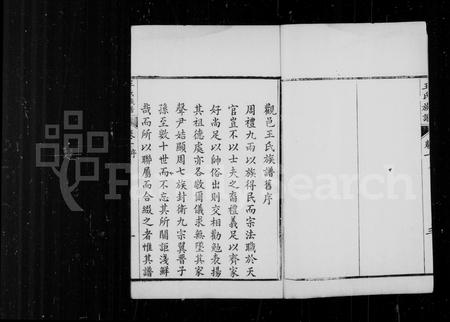 觀邑王氏族譜舊序
周禮九兩以族得民而宗法職於天
官豈不以士夫之裔禮義足以齊家
好尚足以帥俗出則交相勸勉表揚
其祖德處亦各敬爾儀求無墜其家
聲尹姞顯周七族封衛九宗翼晉子
孫至數十世而不忘其所關詎淺鮮
哉而所以聯屬而合綴之者惟其譜
王氏族譜
卷一
三
FamilySearch